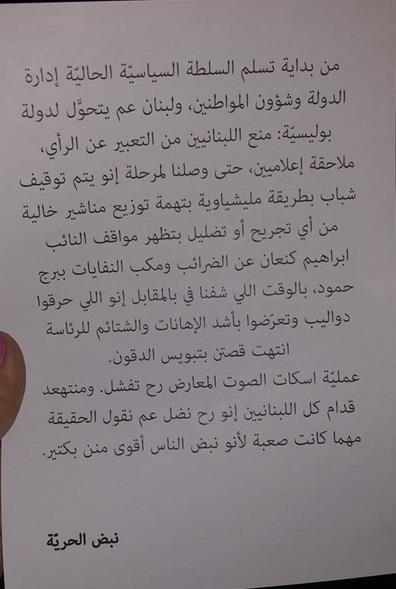 من بداية تسلم السلطة السياسيّة الحاليّة إدارة
الدولة وشؤون المواطنين، ولبنان عم يتحوَّل لدولة
بوليسيّة: منع اللبنانيين من التعبير عن الرأي،
ملاحقة إعلاميين، حتى وصلنا لمرحلة إنو يتم توقيف
شباب بطريقة مليشياوية بتهمة توزيع مناشير خالية
من أي تجريح أو تضليل بتظهر مواقف النائب
ابراهيم كنعان عن الضرائب ومكب النفايات ببرج
حمود، بالوقت اللي شفنا في بالمقابل إنو اللي حرقوا
دواليب وتعرّضوا بأشد الإهانات والشتائم للرئاسة
انتهت قصتن بتبويس الدقون.
عمليّة اسكات الصوت المعارض رح تفشل. ومنتهعد
قدام كل اللبنانيين إنو رح نضل عم نقول الحقيقة
مهما كانت صعبة لأنو نبض الناس أقوى منن بكتير.
نبض الحريّة